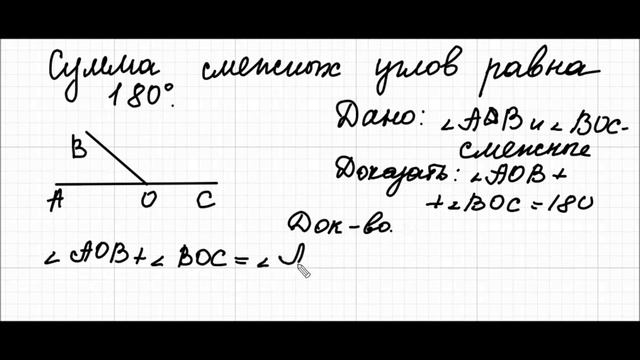 Сумма смежных углов равна
180°.
Дано: ∠AOB и ∠BOC-
смежные
Доказать: ∠AOB +
+∠BOC = 180
B
A O C
Док-во.
∠AOB + ∠BOC = ∠A